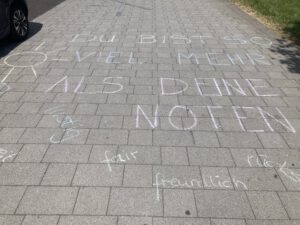 DU BIST SO
VIEL MEHR
ALS DEINE
NOTEN
fair
freundlich